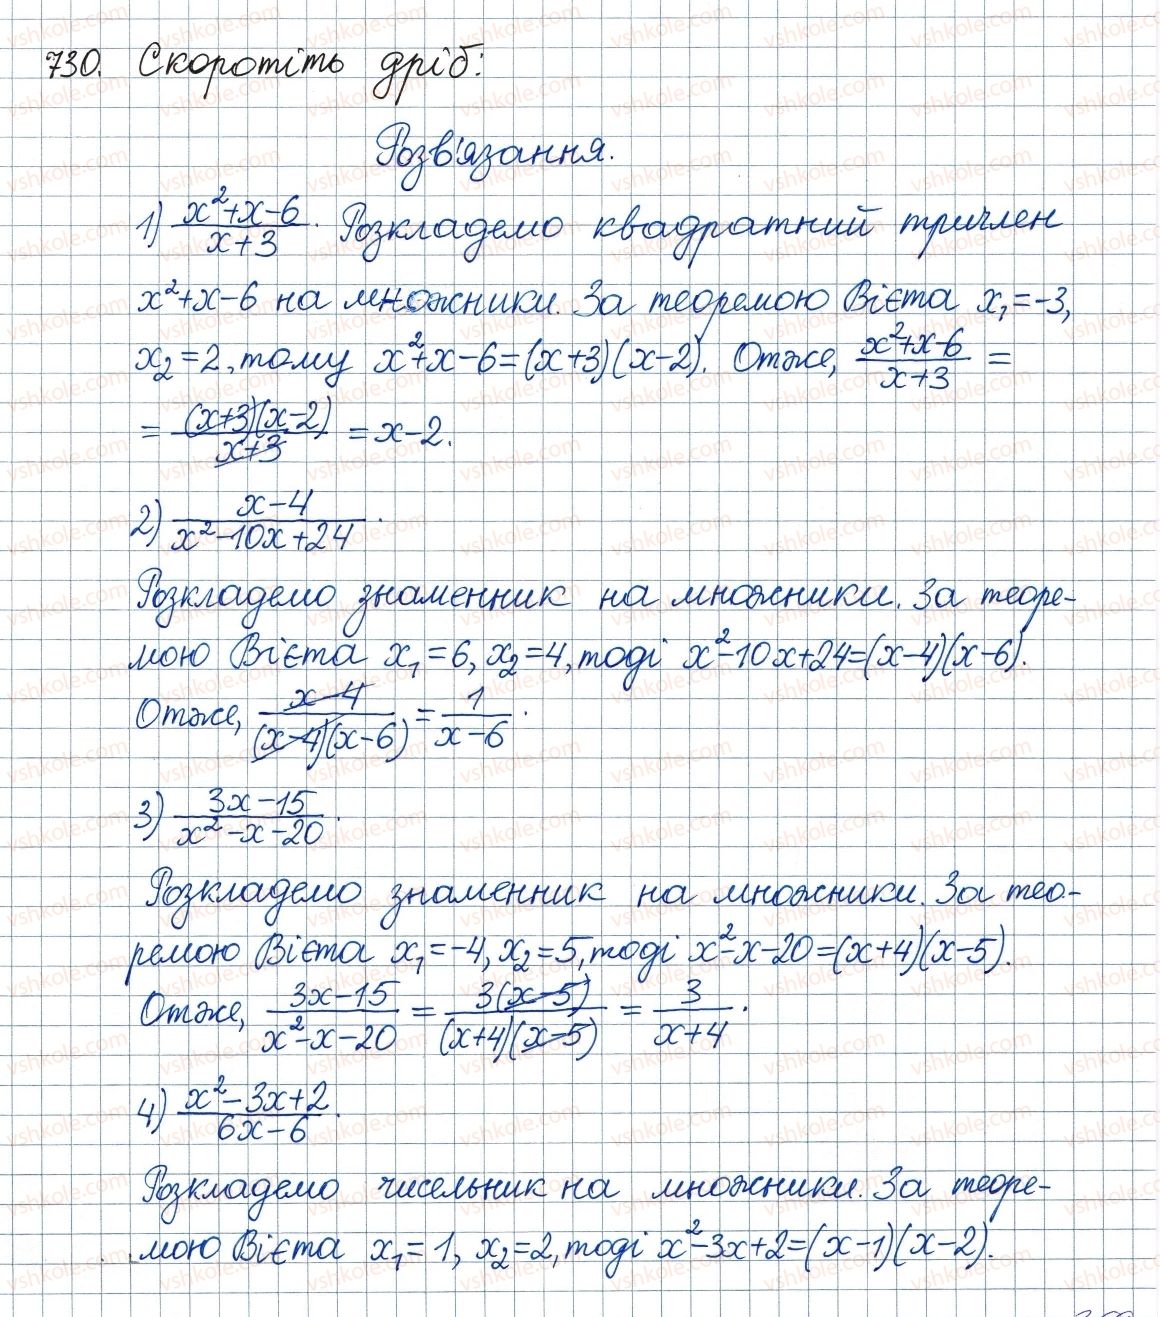 730. Скоротіть дріб:
Розв'язання.
1) (x²+x-6)/(x+3). Розкладемо квадратний тричлен
x²+x-6 на множники. За теоремою Вієта x₁=-3,
x₂=2, тому x²+x-6=(x+3)(x-2). Отже, (x²+x-6)/(x+3) =
= ((x+3)(x-2))/(x+3) = x-2.
2) (x-4)/(x²-10x+24).
Розкладемо знаменник на множники. За теоре-
мою Вієта x₁=6, x₂=4, тоді x²-10x+24=(x-4)(x-6).
Отже, (x-4)/((x-4)(x-6)) = 1/(x-6).
3) (3x-15)/(x²-x-20).
Розкладемо знаменник на множники. За тео-
ремою Вієта x₁=-4, x₂=5, тоді x²-x-20=(x+4)(x-5).
Отже, (3x-15)/(x²-x-20) = (3(x-5))/((x+4)(x-5)) = 3/(x+4).
4) (x²-3x+2)/(6x-6).
Розкладемо чисельник на множники. За теоре-
мою Вієта x₁=1, x₂=2, тоді x²-3x+2=(x-1)(x-2).